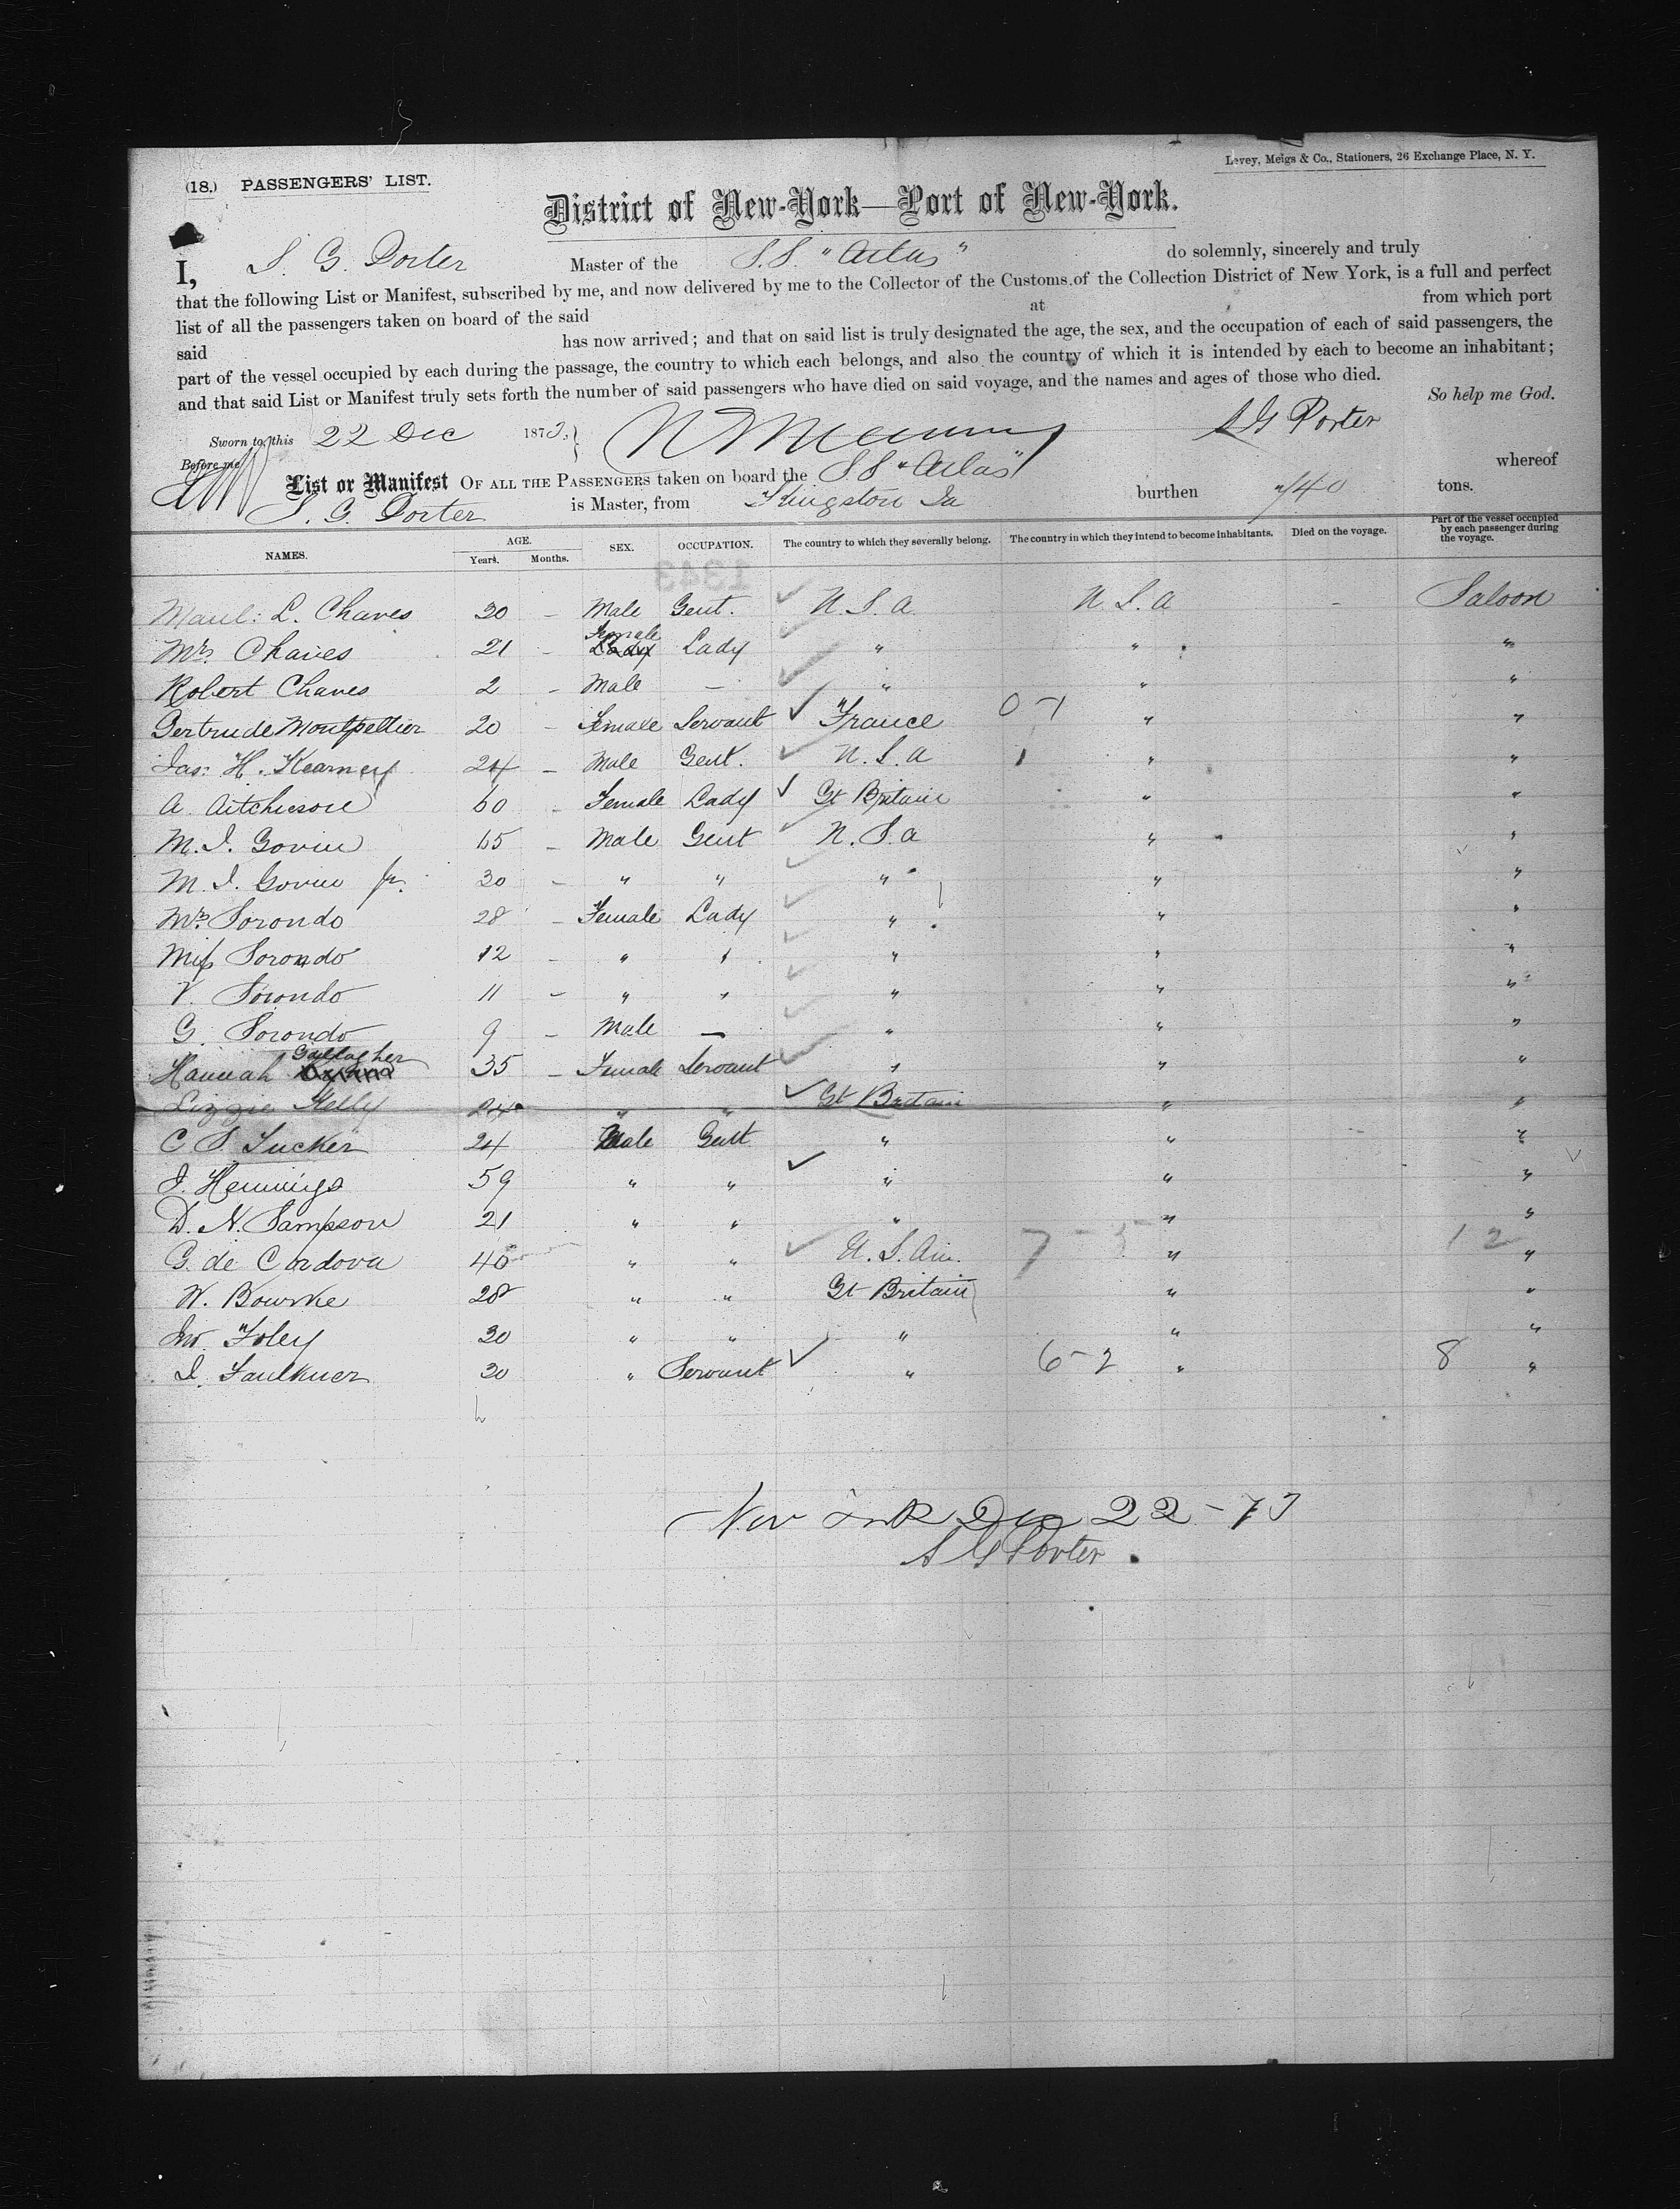 Levey, Meigs & Co., Stationers, 26 Exchange Place, N. Y.
(18.) PASSENGERS' LIST.
District of New-York—Port of New-York.
I, S. G. Porter Master of the S.S. "Atlas" do solemnly, sincerely and truly
that the following List or Manifest, subscribed by me, and now delivered by me to the Collector of the Customs of the Collection District of New York, is a full and perfect
list of all the passengers taken on board of the said at from which port
said has now arrived; and that on said list is truly designated the age, the sex, and the occupation of each of said passengers, the
part of the vessel occupied by each during the passage, the country to which each belongs, and also the country of which it is intended by each to become an inhabitant;
and that said List or Manifest truly sets forth the number of said passengers who have died on said voyage, and the names and ages of those who died.
So help me God.
Sworn to, this 22 Dec 1873. S G Porter
Before me
List or Manifest OF ALL THE PASSENGERS taken on board the S S "Atlas" whereof
S. G. Porter is Master, from Kingston Ja burthen 740 tons.
NAMES. AGE. Years. Months. SEX. OCCUPATION. The country to which they severally belong. The country in which they intend to become inhabitants. Died on the voyage. Part of the vessel occupied by each passenger during the voyage.
1343
Manl: L. Chaves 30 – Male Gent. U. S. A U. S. A – Saloon
Mrs. Chaves 21 – Female Lady " " "
Robert Chaves 2 – Male – " " "
Gertrude Montpeltier 20 – Female Servant France 0-1 " "
Jas: H. Kearney 24 – Male Gent. U. S. A " "
A. Aitcheson 60 – Female Lady Gt Britain " "
M. I. Govin 65 – Male Gent U. S. A " "
M. I. Govin Jr. 30 – " " " " "
Mrs. Sorondo 28 – Female Lady " " "
Miss Sorondo 12 – " " " " "
V. Sorondo 11 – " " " " "
G. Sorondo 9 – Male – " " "
Hannah Gallagher 35 – Female Servant " " "
Lizzie Kelly 24 " " Gt Britain " "
C S. Tucker 24 Male Gent " " "
J. Hennings 59 " " " " "
D. N. Sampson 21 " " " " "
G. de Cordova 40 " " U. S. Am. 7-5 " 12 "
W. Bourke 28 " " Gt Britain " "
Jno. Foley 30 " " " " "
I. Faulkner 30 " Servant " 6-2 " 8 "
New York Dec 22-73
S G Porter.